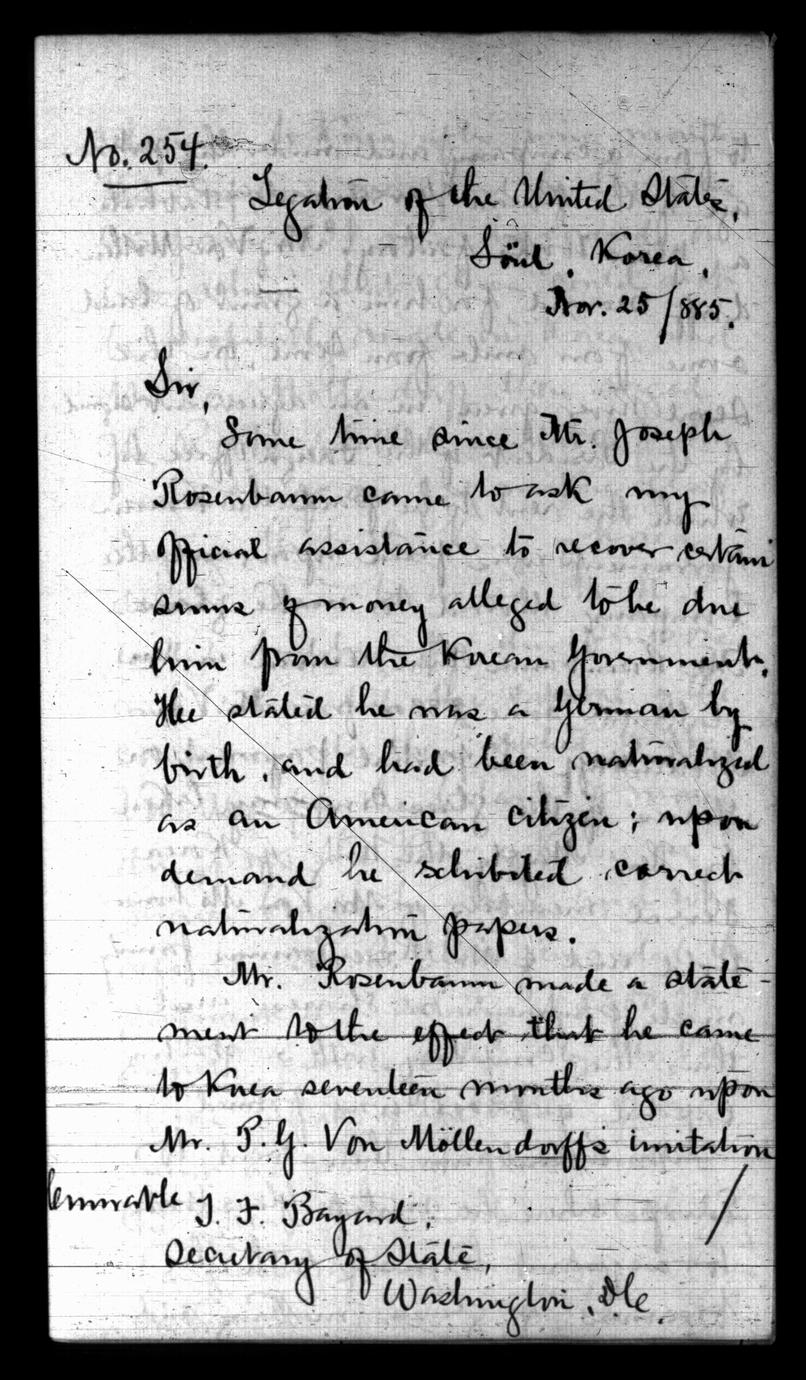 No. 254.
Legation of the United States,
Söul, Korea,
Nov. 25/885.
Sir,
Some time since Mr. Joseph
Rosenbaum came to ask my
official assistance to recover certain
sums of money alleged to be due
him from the Korean Government.
He stated he was a German by
birth, and had been naturalized
as an American citizen; upon
demand he exhibited correct
naturalization papers.
Mr. Rosenbaum made a state-
ment to the effect that he came
to Korea seventeen months ago upon
Mr. P. G. Von Möllendorff's invitation
T. F. Bayard,
Secretary of State,
Washington, D.C.